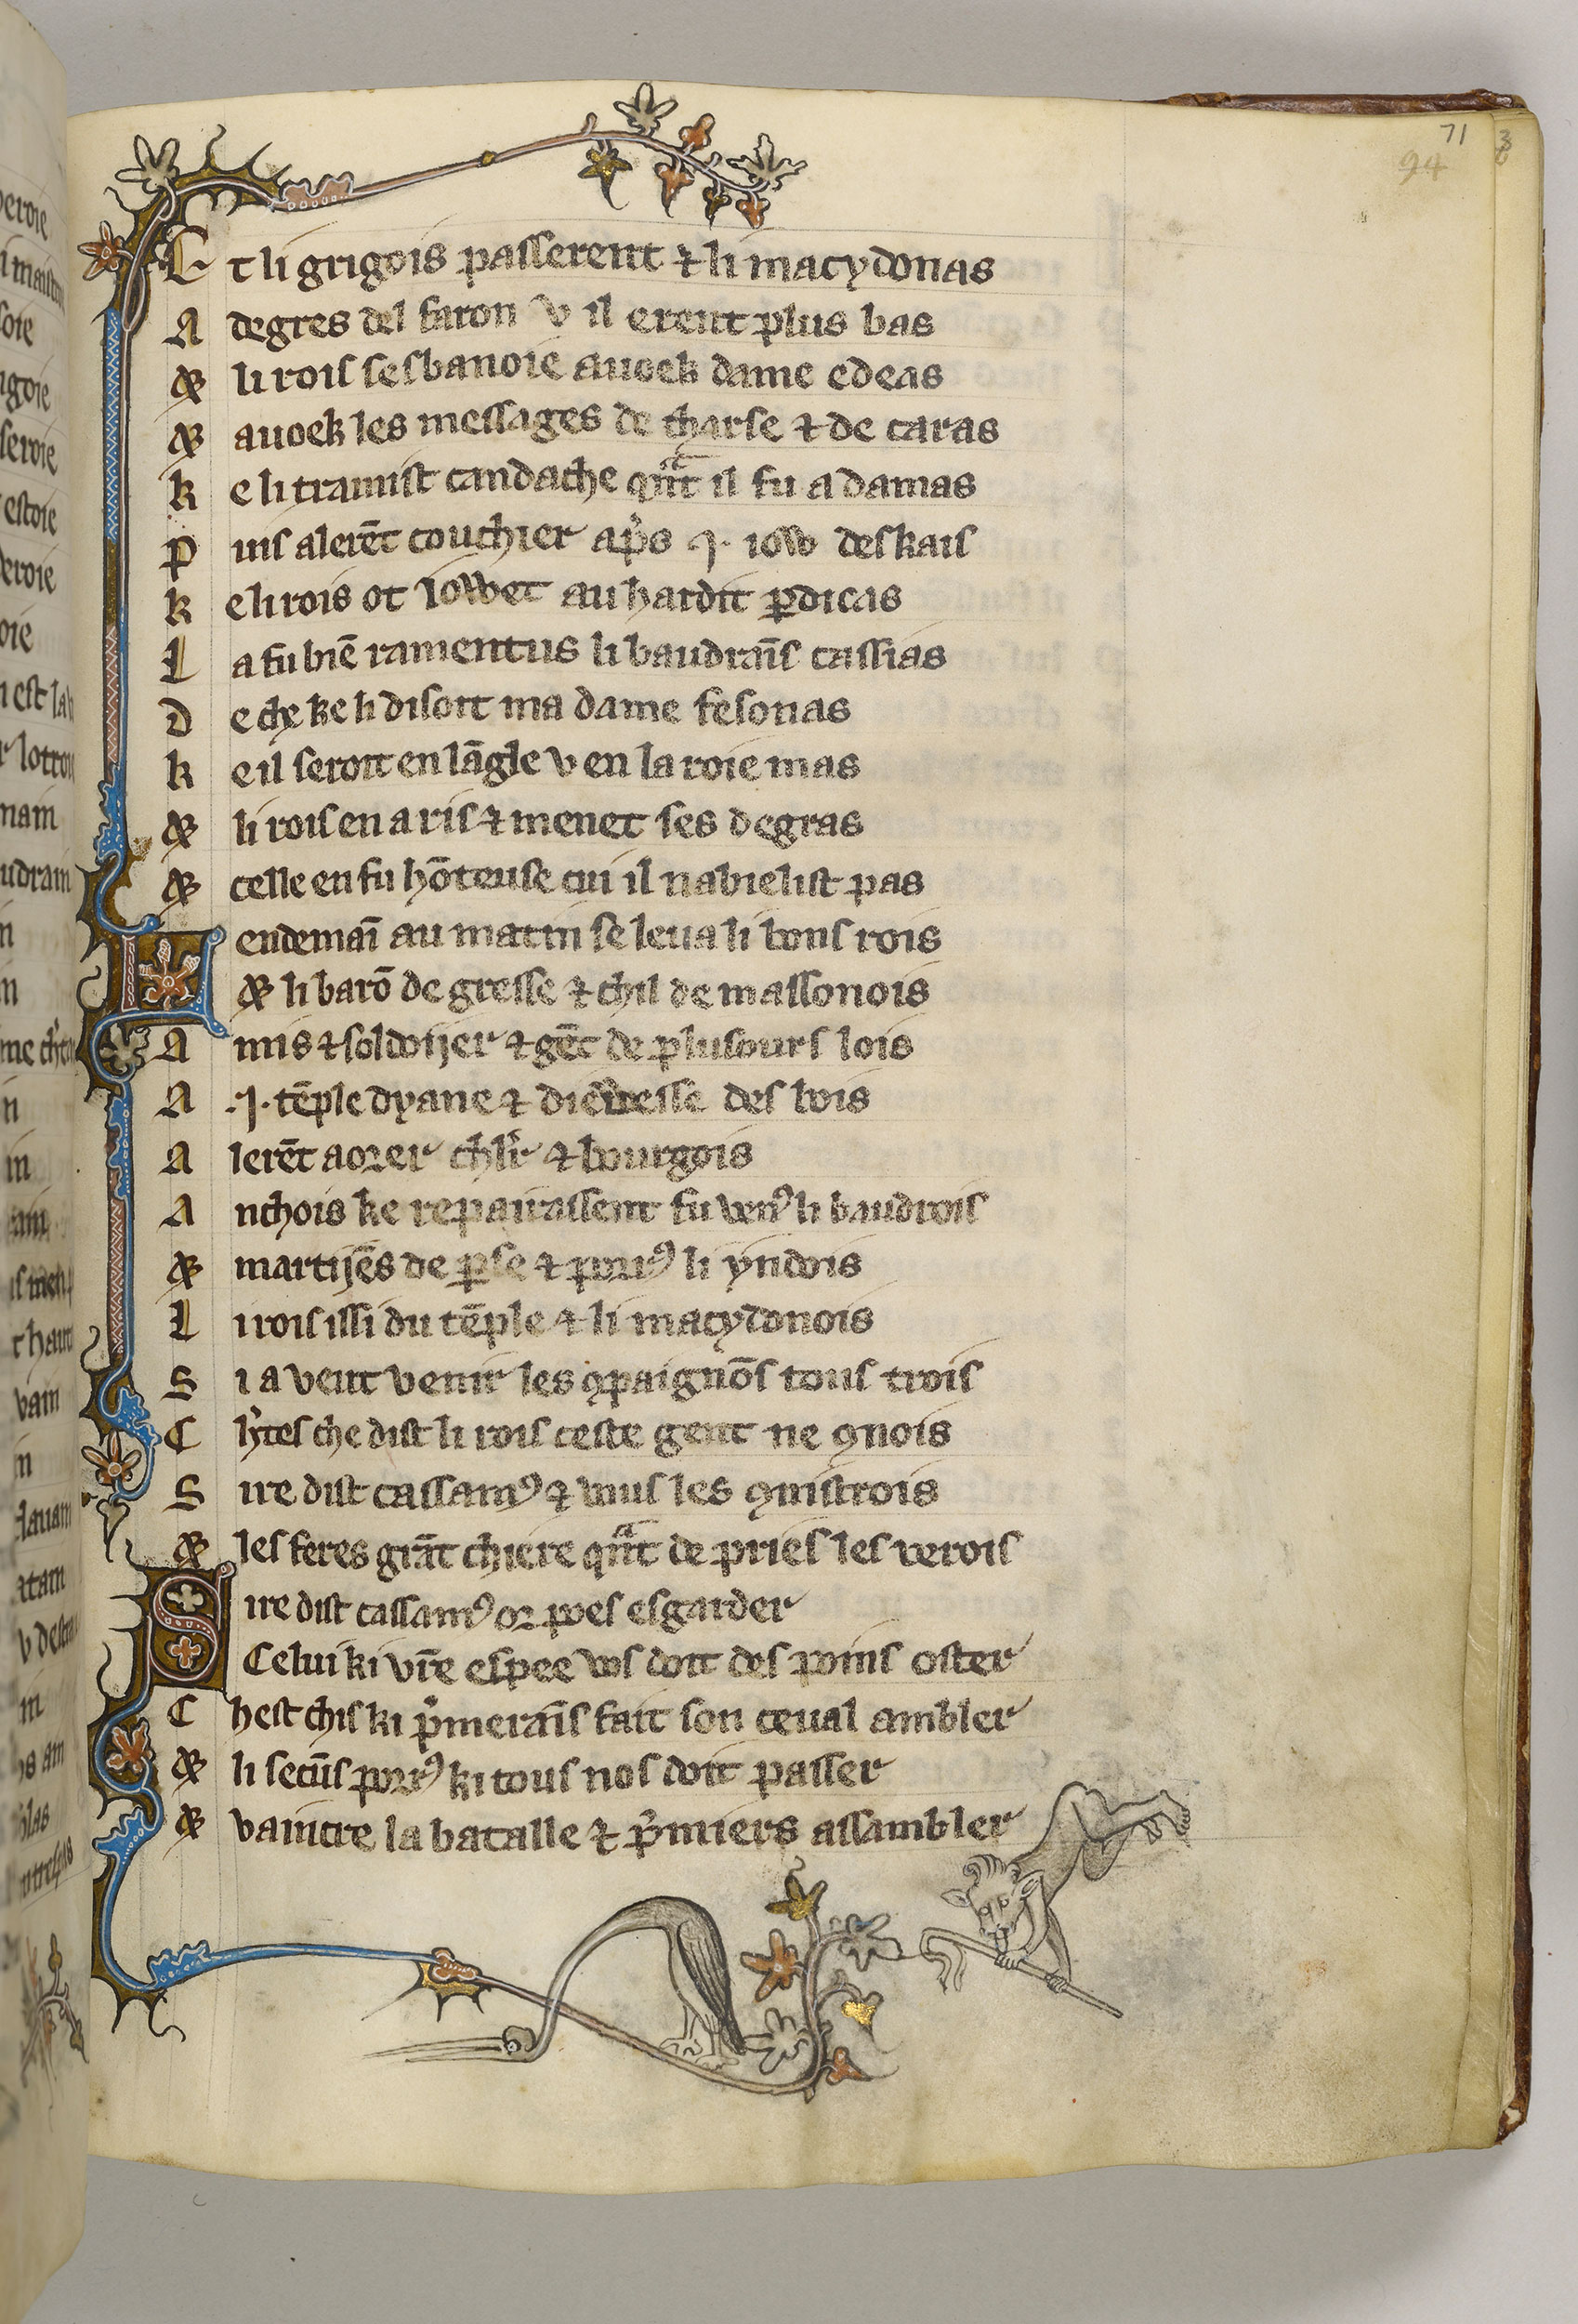 71
94
Et li grigois passerent ⁊ li macydonas
A degres del faron v il erent plus bas
⁊ li rois sesbanoie auoek dame edeas
⁊ auoek les messages de tharse ⁊ de caras
k e li tramist candache qᵃ̄t il fu a damas
P uis alerēt couchier ap̾s .I. iow deskais
k e li rois ot iowet au hardit ꝑdicas
L a fu biē ramentus li baudraīs cassias
D e che ke li disoit ma dame fesonas
k e il seroit en lāgle v en la roie mas
⁊ li rois en a ris ⁊ menet ses degras
⁊ celle en fu hōteuse cui il nabielist pas
Lendemaī au matin se leua li bons rois
⁊ li barō de gresse ⁊ chil de massonois
A mis ⁊ soldoijer ⁊ gēt de plusours lois
A .I. tēple dyane ⁊ diewesse des bois
A lerēt aorer chlr̄ ⁊ bourgois
A nchois ke repairassent fu venꝰ li baudrois
⁊ martijēs de ꝑse ⁊ porꝰ li yndois
L i rois issi du tēple ⁊ li macydonois
S i a veut venir les ꝯpaignōs tous trois
C h̾tes che dist li rois ceste gent ne ꝯnois
S ire dist cassamꝰ ⁊ vous les ꝯnistrois
⁊ les feres grāt chiere qᵃ̄t de pries les verois
Sire dist cassamꝰ or poes esgarder
Celui ki vr̄e espee vos doit des poins oster
C hest chis ki p̾meraīs fait son ceual ambler
⁊ li secūs porꝰ ki tous nos doit passer
⁊ vaintre la batalle ⁊ p̾miers assambler